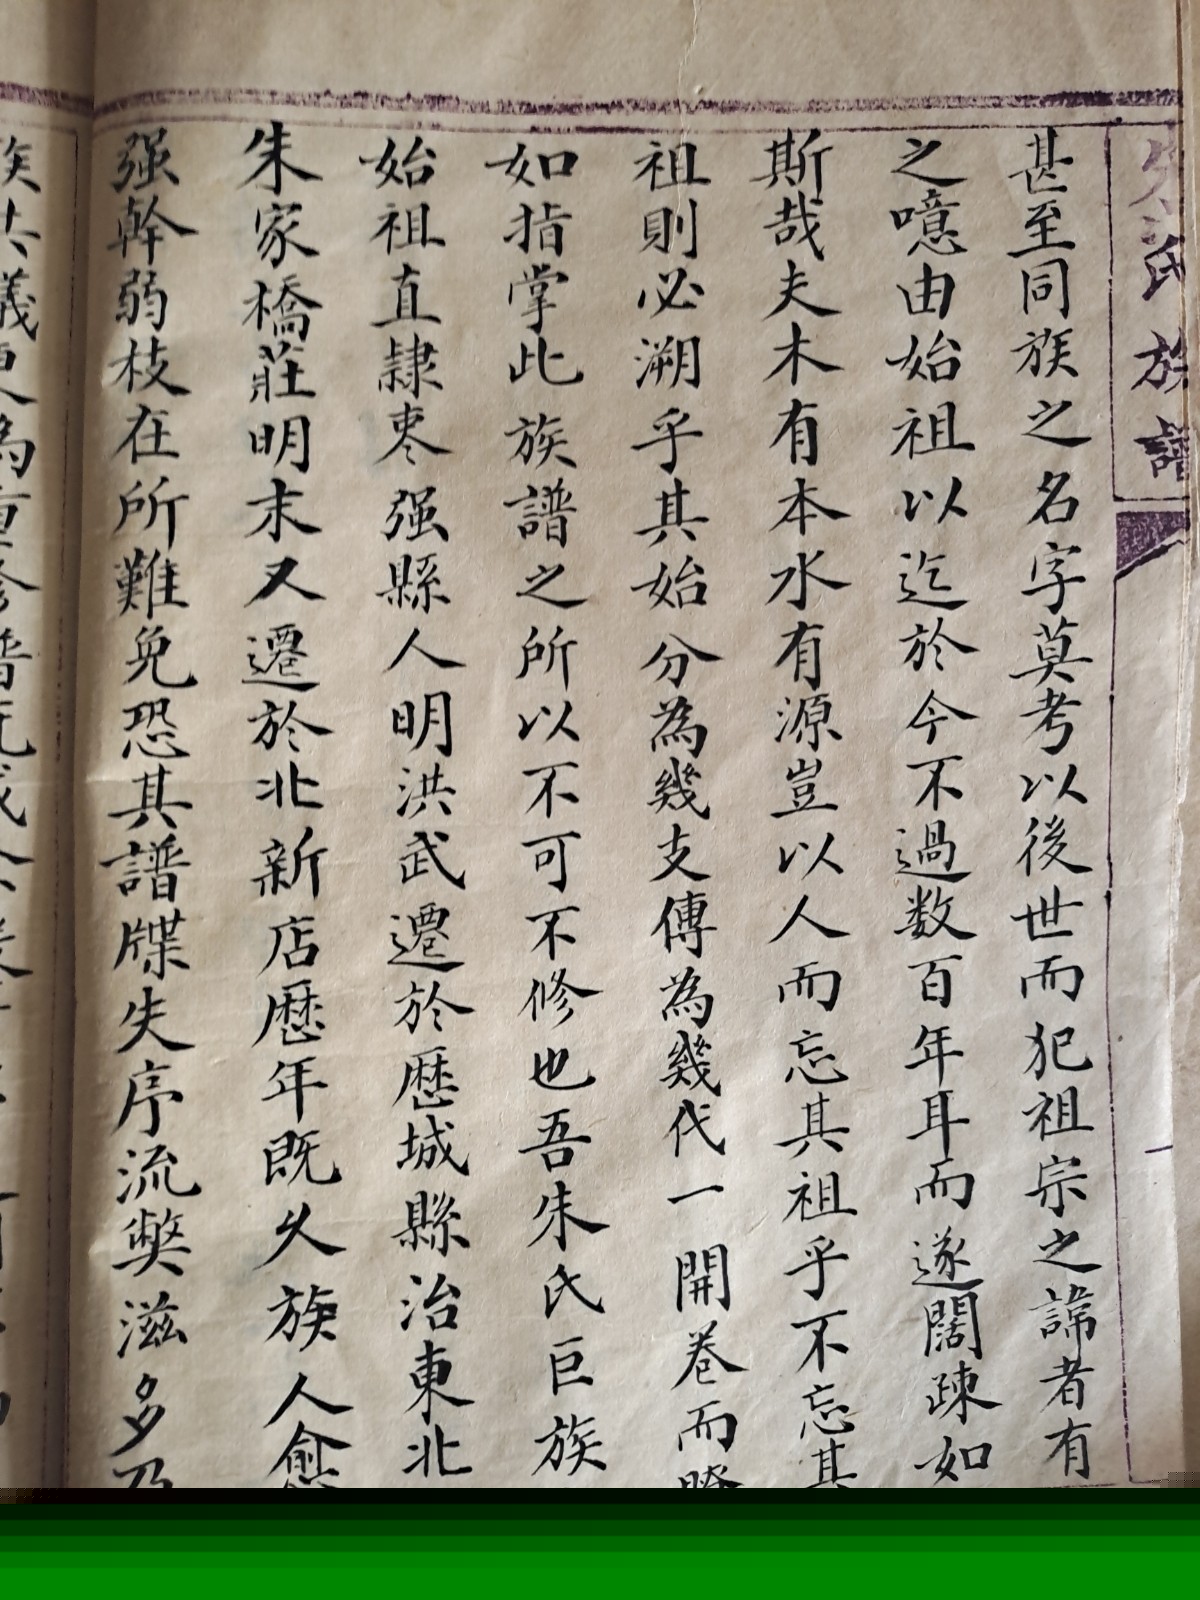 朱氏族譜
甚至同族之名字莫考以後世而犯祖宗之諱者有
之噫由始祖以迄於今不過数百年耳而遂闊疎如
斯哉夫木有本水有源豈以人而忘其祖乎不忘其
祖則必溯乎其始分為幾支傳為幾代一開卷而瞭
如指掌此族譜之所以不可不修也吾朱氏巨族
始祖直隸枣强縣人明洪武遷於歷城縣治東北
朱家橋莊明末又遷於北新店歷年既久族人愈
强幹弱枝在所難免恐其譜牒失序流獘滋多乃
族共議更為重修譜既成